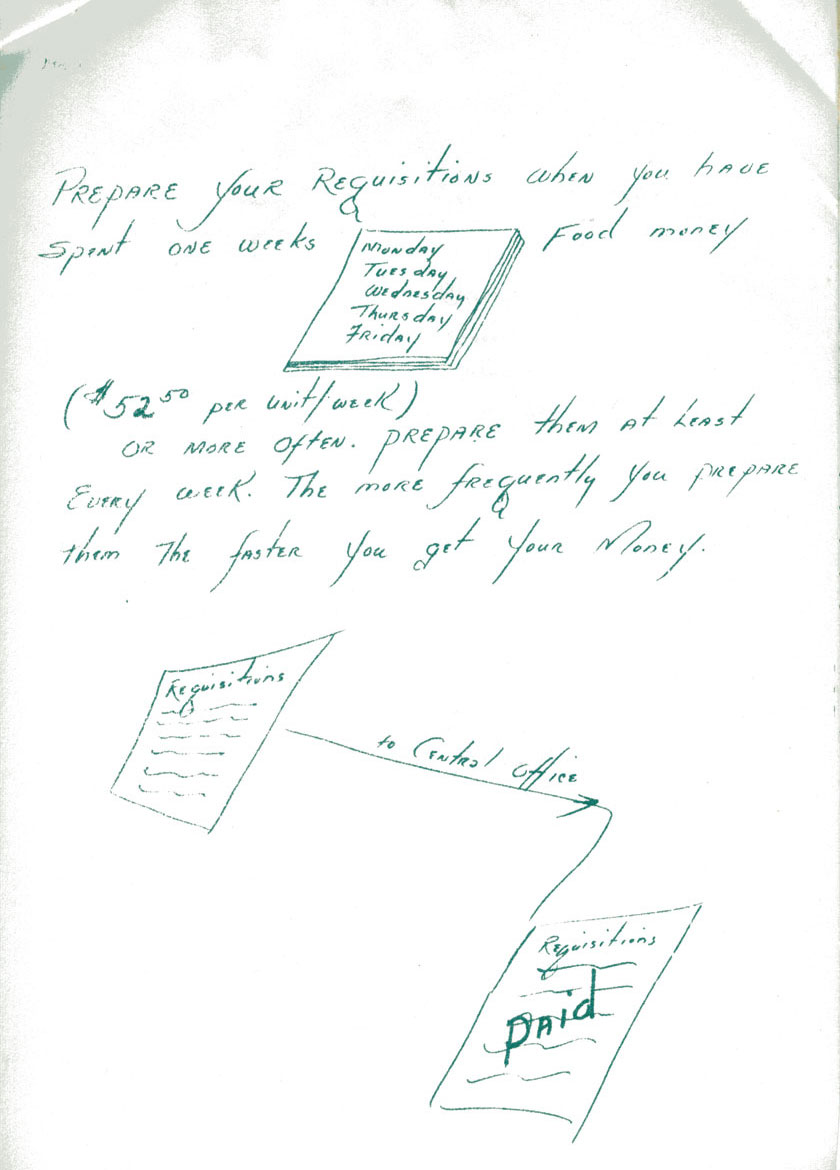 Prepare your Requisitions when you have
spent one weeks Food money
Monday
Tuesday
Wednesday
Thursday
Friday
($52.50 per unit/week)
or more often. Prepare them at least
Every week. The more frequently you prepare
them the faster you get your Money.
Requisitions
to Central Office
Requisitions
paid